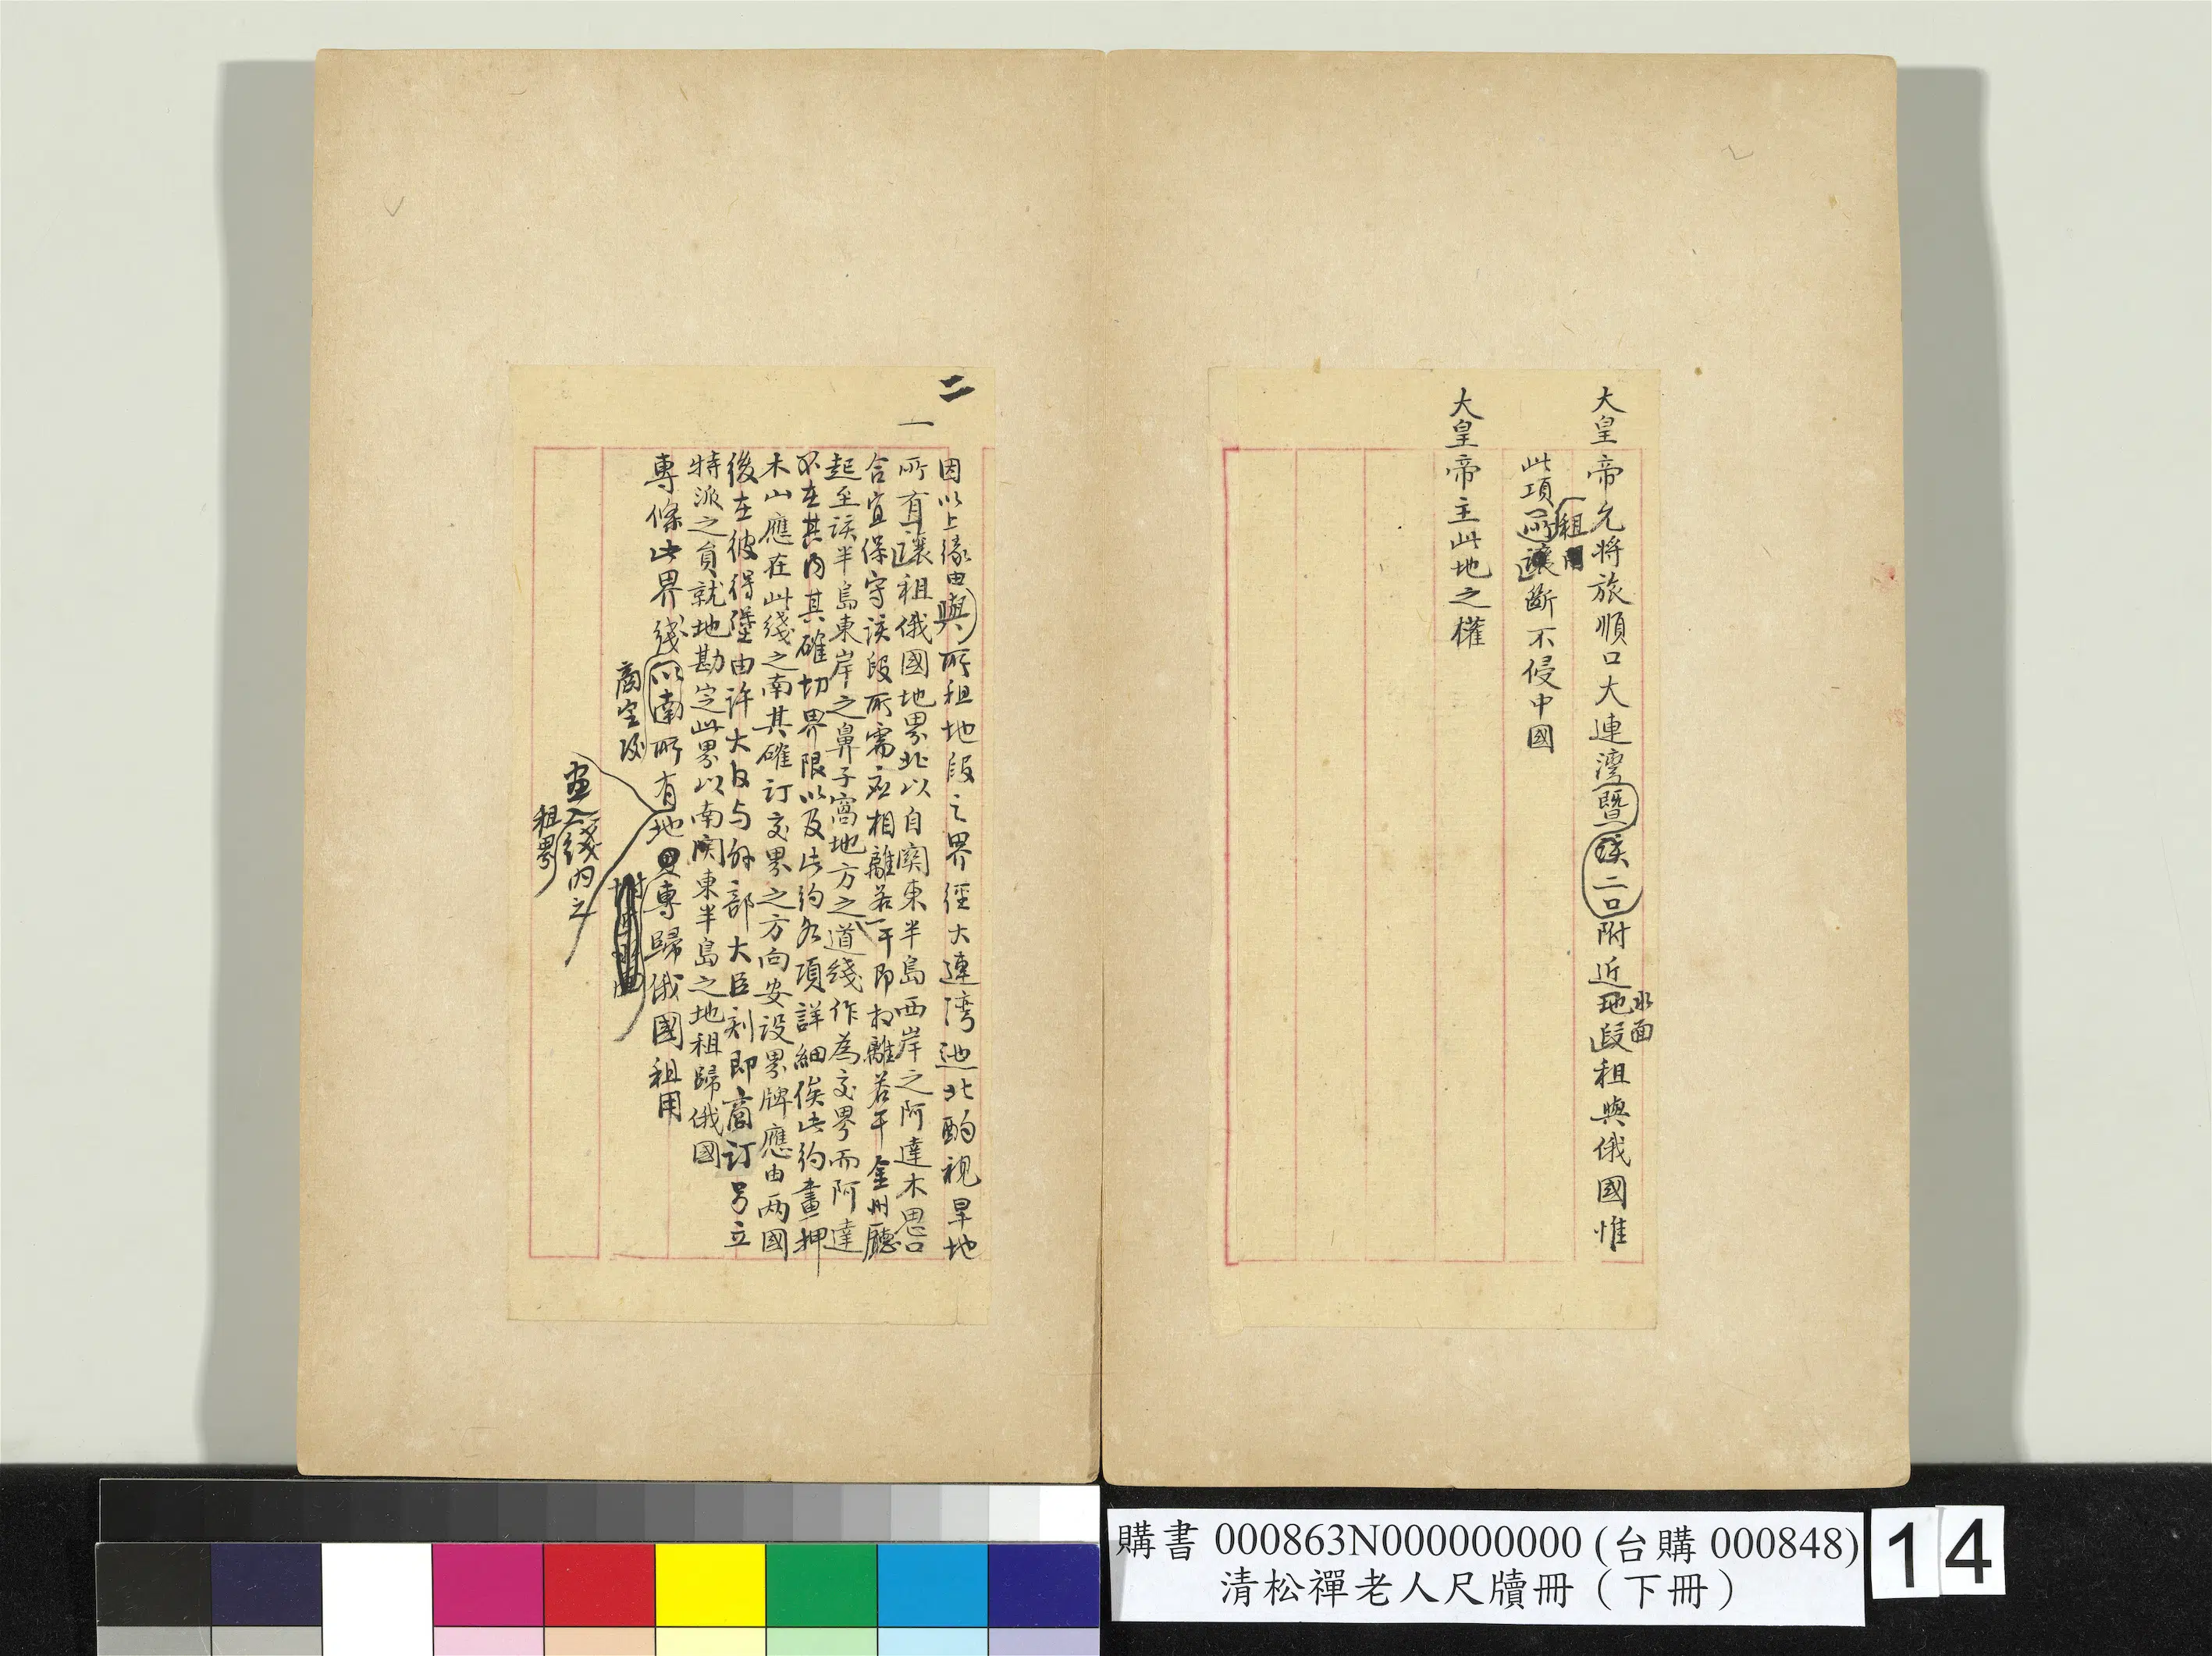 大皇帝允將旅順口大連灣暨該二口附近地段租與俄國惟
水面
租
此項所讓斷不侵中國
大皇帝主此地之權
二
因以上緣由與所租地段之界經大連灣迤北酌視旱地
一
所有讓租俄國地界北以自關東半島西岸之阿達木思口
合宜保守該段所需應相離若干即相離若干金州廳
起至該半島東岸之鼻子窩地方之道綫作為交界而阿達
不在其內其確切界限以及此約各項詳細俟此約畫押
木山應在此綫之南其確訂交界之方向安設界牌應由两國
後在彼得堡由許大臣与外部大臣刻即商訂另立
特派之員就地勘定此界以南関東半島之地租歸俄國
專條此界綫以南所有地專歸俄國租用
商定後
畫入綫內之
租界
購書 000863N000000000 (台購 000848)
清松禪老人尺牘冊（下冊）
14